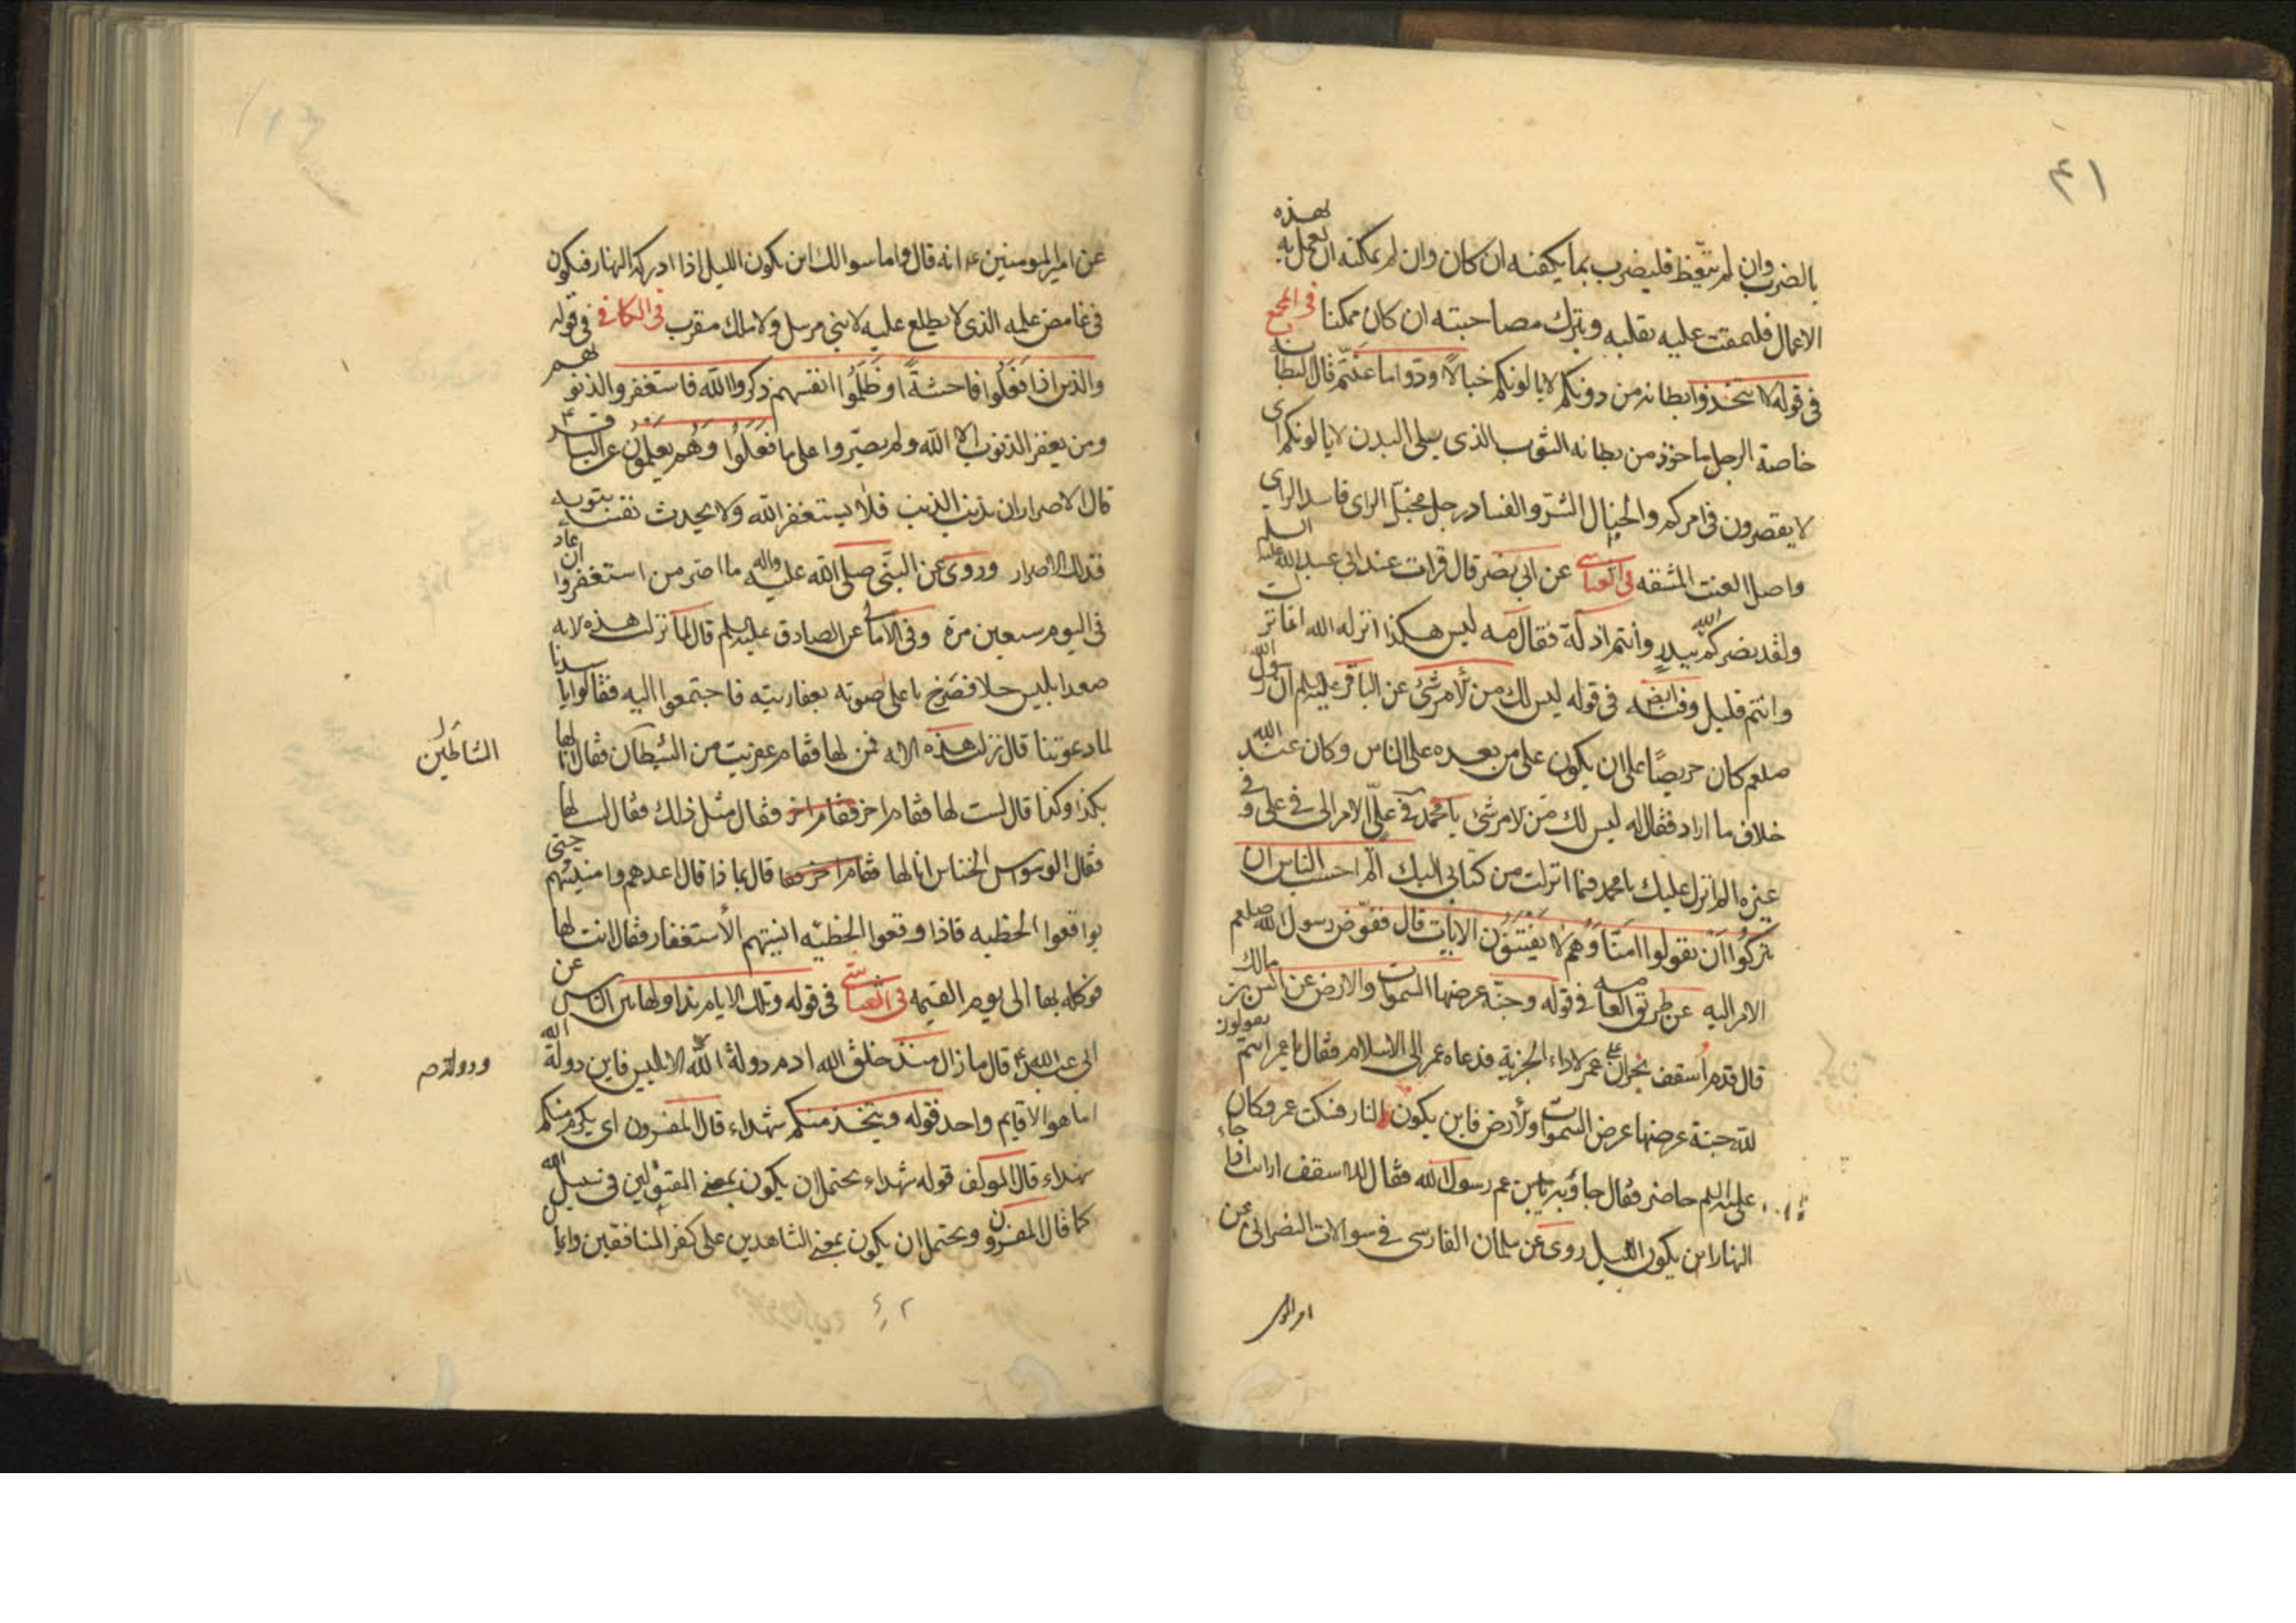 ٤١
بالضرب وان لم يتغيظ فليضرب بما يكفنه ان كان وان لم يمكنه ان يعمل به بهذه
الاعمال فليمقت عليه بقلبه ويترك مصاحبته ان كان ممكنا فى المجمع
فى قوله لا تتخذوا بطانة من دونكم لا يالونكم خبالا ودوا ما عنتم قال البطانة
خاصة الرجل ماخوذ من بطانه الثوب الذى يلى البدن لا يالونكم اى
لا يقصرون فى امركم والخبال الشر والفساد رجل مخبل الراى فاسد الراى
واصل العنت المشقه فى العياشى عن ابى بصر قال قرات عند ابى عبد الله عليه السلم
ولقد نصركم الله ببدر وانتم اذلة فقال مه ليس هكذا انزله الله انما نزلت
وانتم قليل وفيه ايضا فى قوله ليس لك من الامر شئ عن الباقر عليلم ان رسول الله
صلعم كان حريصا على ان يكون على من بعده على الناس وكان عند الله
خلاف ما اراد فقال له ليس لك من الامر شئ يا محمد فى على الامر الى فى على وفى
غيره الم انزل عليك يا محمد فيما انزلت من كتابى اليك الم احسب الناس ان
يتركوا ان يقولوا امنا وهم لا يفتنون الايات قال ففوض رسول الله صلعم
الامر اليه عن طريق العامه فى قوله وجنة عرضها السموات والارض عن انس بن مالك
قال قدم اسقف نجران على عمر لاداء الجزية فدعاه عمر الى الاسلام فقال يا عمر انتم يقولون
لله جنة عرضها عرض السموات والارض فاين يكون النار فنكت عمر وكان
على عليه السلم حاضر فقال جاوبه يا بن عم رسول الله فقال للاسقف ارايت اذا جاء
النهار اين يكون الليل روى عن سلمان الفارسى فى سوالات النصرانى عن
امير المو
عن امير المومنين عم انه قال واما سوالك اين يكون الليل اذا ادركه النهار فيكون
فى غامض علمه الذى لا يطلع عليه لا نبى مرسل ولا ملك مقرب فى الكافى فى قوله
والذين اذا فعلوا فاحشة او ظلموا انفسهم ذكروا الله فاستغفروا لذنوبهم
ومن يغفر الذنوب الا الله ولم يصروا على ما فعلوا وهم يعلمون عن الباقر ع
قال الاصرار ان يذنب الذنب فلا يستغفر الله ولا يحدث نفسه بتوبه
فذلك الاصرار وروى عن النبى صلى الله عليه واله ما اصر من استغفر وان عاد
فى اليوم سبعين مرة وفى الامالى عن الصادق عليلم قال لما نزلت هذه الايه
صعد ابليس جبلا فصرخ باعلى صوته بعفاريته فاجتمعوا اليه فقالوا يا سيدنا
لما دعوتنا قال نزلت هذه الايه فمن لها فقام عفريت من الشيطان فقال انا لها
الشياطين
بكذا وكذا قال لست لها فقام اخر فقام اخر فقال مثل ذلك فقال لست لها
فقال الوسواس الخناس انا لها فقام اخر قال بما ذا قال اعدهم وامنيهم حتى
يواقعوا الخطيه فاذا وقعوا الخطيئه انسيتهم الاستغفار فقال انت لها
فوكله بها الى يوم القيمه فى العياشى فى قوله وتلك الايام نداولها بين الناس عن
ابى عبد الله ع قال ما زال منذ خلق الله ادم دولة الله لابليس فاين دولة الله
ودولة
اما هو الا قايم واحد قوله ويتخذ منكم شهداء قال المفسرون اى يكرم منكم
شهداء قال المولف قوله شهداء يحتمل ان يكون بمعنى المقتولين فى سبيل الله
كما قال المفسرون ويحتمل ان يكون بمعنى الشاهدين على كفر المنافقين وايما